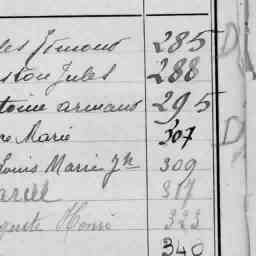 les Edmond 285 D
ston Jules 288
toine armand 295
re Marie 307 D
Louis Marie Jh 309
arcel 317
guste Henri 323
340